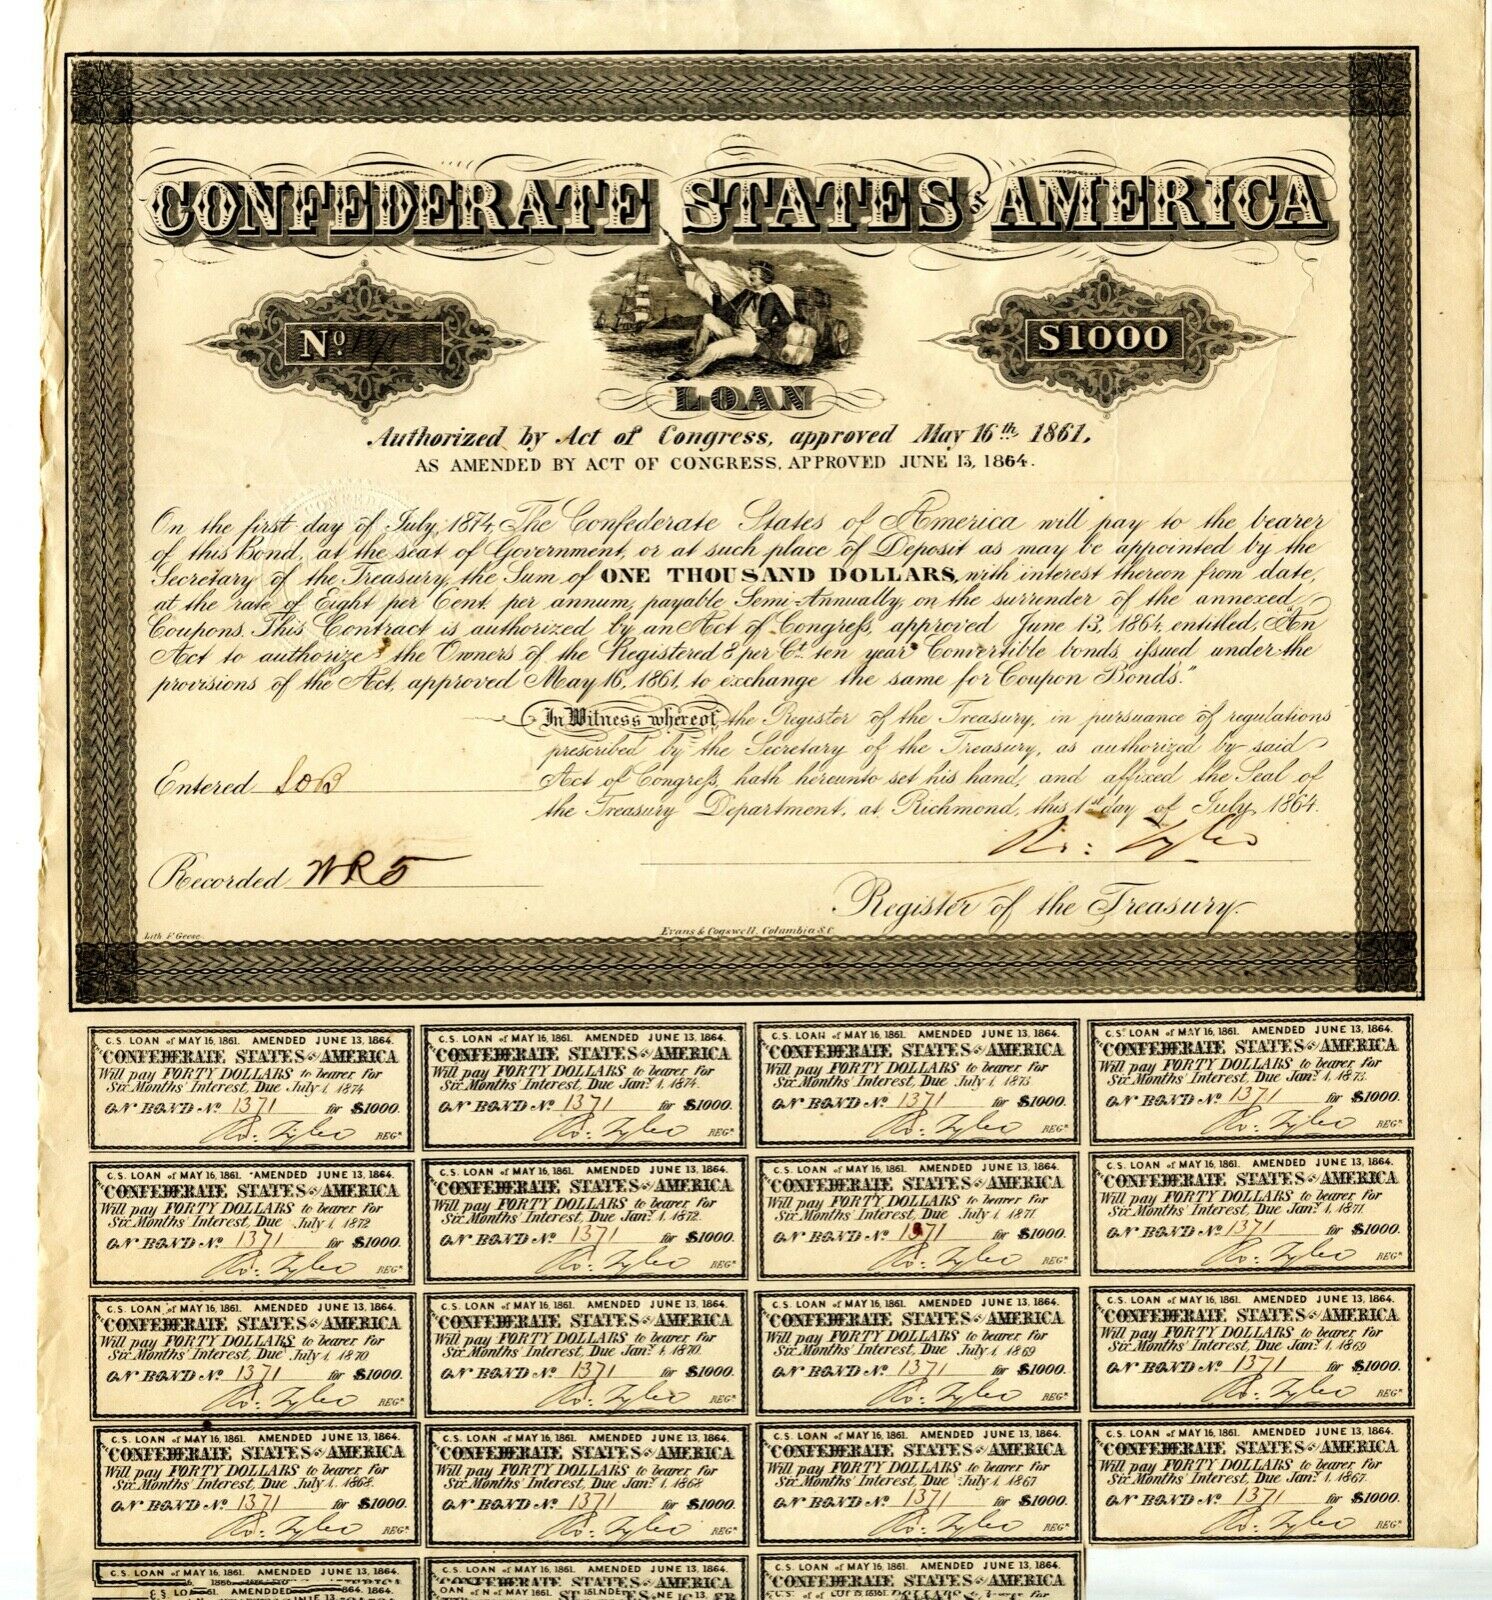 CONFEDERATE STATES of AMERICA
No. $1000
LOAN
Authorized by Act of Congress, approved May 16th, 1861,
AS AMENDED BY ACT OF CONGRESS, APPROVED JUNE 13, 1864.
On the first day of July, 1874, The Confederate States of America will pay to the bearer
of this Bond, at the seat of Government, or at such place of Deposit as may be appointed by the
Secretary of the Treasury, the Sum of ONE THOUSAND DOLLARS, with interest thereon from date,
at the rate of Eight per Cent. per annum, payable Semi-Annually, on the surrender of the annexed
Coupons. This Contract is authorized by an Act of Congress, approved June 13, 1864, entitled, "An
Act to authorize the Owners of the Registered 8 per Ct. ten year Convertible bonds, issued under the
provisions of the Act, approved May 16, 1861, to exchange the same for Coupon Bonds."
In Witness whereof, the Register of the Treasury, in pursuance of regulations
prescribed by the Secretary of the Treasury, as authorized by said
Act of Congress, hath hereunto set his hand, and affixed the Seal of
the Treasury Department, at Richmond, this 1st day of July, 1864.
Entered
Ro: Tyler
Recorded
Register of the Treasury.
Lith F. Geese
Evans & Cogswell, Columbia S.C.
C.S. LOAN of MAY 16, 1861. AMENDED JUNE 13, 1864.
CONFEDERATE STATES of AMERICA
Will pay FORTY DOLLARS to bearer for
Six Months' Interest, Due July 1, 1874
ON BOND No. 1371 for $1000.
Ro: Tyler REGR
C.S. LOAN of MAY 16, 1861. AMENDED JUNE 13, 1864.
CONFEDERATE STATES of AMERICA
Will pay FORTY DOLLARS to bearer for
Six Months' Interest, Due Jany. 1, 1874.
ON BOND No. 1371 for $1000.
Ro: Tyler REGR
C.S. LOAN of MAY 16, 1861. AMENDED JUNE 13, 1864.
CONFEDERATE STATES of AMERICA
Will pay FORTY DOLLARS to bearer for
Six Months' Interest, Due July 1, 1873
ON BOND No. 1371 for $1000.
Ro: Tyler REGR
C.S. LOAN of MAY 16, 1861. AMENDED JUNE 13, 1864.
CONFEDERATE STATES of AMERICA
Will pay FORTY DOLLARS to bearer for
Six Months' Interest, Due Jany. 1, 1873.
ON BOND No. 1371 for $1000.
Ro: Tyler REGR
C.S. LOAN of MAY 16, 1861. AMENDED JUNE 13, 1864.
CONFEDERATE STATES of AMERICA
Will pay FORTY DOLLARS to bearer for
Six Months' Interest, Due July 1, 1872
ON BOND No. 1371 for $1000.
Ro: Tyler REGR
C.S. LOAN of MAY 16, 1861. AMENDED JUNE 13, 1864.
CONFEDERATE STATES of AMERICA
Will pay FORTY DOLLARS to bearer for
Six Months' Interest, Due Jany. 1, 1872.
ON BOND No. 1371 for $1000.
Ro: Tyler REGR
C.S. LOAN of MAY 16, 1861. AMENDED JUNE 13, 1864.
CONFEDERATE STATES of AMERICA
Will pay FORTY DOLLARS to bearer for
Six Months' Interest, Due July 1, 1871
ON BOND No. 1371 for $1000.
Ro: Tyler REGR
C.S. LOAN of MAY 16, 1861. AMENDED JUNE 13, 1864.
CONFEDERATE STATES of AMERICA
Will pay FORTY DOLLARS to bearer for
Six Months' Interest, Due Jany. 1, 1871.
ON BOND No. 1371 for $1000.
Ro: Tyler REGR
C.S. LOAN of MAY 16, 1861. AMENDED JUNE 13, 1864.
CONFEDERATE STATES of AMERICA
Will pay FORTY DOLLARS to bearer for
Six Months' Interest, Due July 1, 1870
ON BOND No. 1371 for $1000.
Ro: Tyler REGR
C.S. LOAN of MAY 16, 1861. AMENDED JUNE 13, 1864.
CONFEDERATE STATES of AMERICA
Will pay FORTY DOLLARS to bearer for
Six Months' Interest, Due Jany. 1, 1870.
ON BOND No. 1371 for $1000.
Ro: Tyler REGR
C.S. LOAN of MAY 16, 1861. AMENDED JUNE 13, 1864.
CONFEDERATE STATES of AMERICA
Will pay FORTY DOLLARS to bearer for
Six Months' Interest, Due July 1, 1869
ON BOND No. 1371 for $1000.
Ro: Tyler REGR
C.S. LOAN of MAY 16, 1861. AMENDED JUNE 13, 1864.
CONFEDERATE STATES of AMERICA
Will pay FORTY DOLLARS to bearer for
Six Months' Interest, Due Jany. 1, 1869
ON BOND No. 1371 for $1000.
Ro: Tyler REGR
C.S. LOAN of MAY 16, 1861. AMENDED JUNE 13, 1864.
CONFEDERATE STATES of AMERICA
Will pay FORTY DOLLARS to bearer for
Six Months' Interest, Due July 1, 1868.
ON BOND No. 1371 for $1000.
Ro: Tyler REGR
C.S. LOAN of MAY 16, 1861. AMENDED JUNE 13, 1864.
CONFEDERATE STATES of AMERICA
Will pay FORTY DOLLARS to bearer for
Six Months' Interest, Due Jany. 1, 1868
ON BOND No. 1371 for $1000.
Ro: Tyler REGR
C.S. LOAN of MAY 16, 1861. AMENDED JUNE 13, 1864.
CONFEDERATE STATES of AMERICA
Will pay FORTY DOLLARS to bearer for
Six Months' Interest, Due July 1, 1867
ON BOND No. 1371 for $1000.
Ro: Tyler REGR
C.S. LOAN of MAY 16, 1861. AMENDED JUNE 13, 1864.
CONFEDERATE STATES of AMERICA
Will pay FORTY DOLLARS to bearer for
Six Months' Interest, Due Jany. 1, 1867.
ON BOND No. 1371 for $1000.
Ro: Tyler REGR
C.S. LOAN of MAY 16, 1861. AMENDED JUNE 13, 1864.
C.S. LOAN of MAY 16, 1861. AMENDED JUNE 13, 1864.
CONFEDERATE STATES of AMERICA
C.S. LOAN of MAY 16, 1861. AMENDED JUNE 13, 1864.
CONFEDERATE STATES of AMERICA